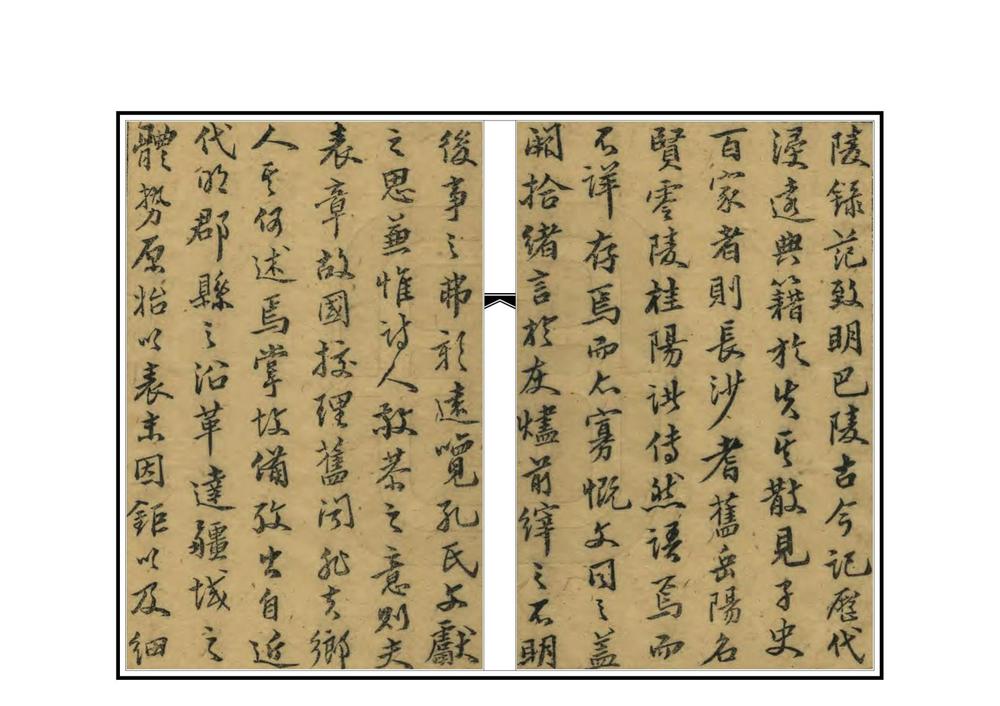 陵錄范致明巴陵古今記歷代
浸遠典籍放失其散見子史
百家者則長沙耆舊岳陽名
賢零陵桂陽諸傳然語焉而
不詳存焉而亦寡慨文之蓋
闕拾緒言於灰燼前繹之不明
後事之弗彰遠覽孔氏文獻
之思兼惟詩人敬恭之意則夫
表章故國挍理舊聞非吾鄉
人其何述焉掌故備攷出自近
代明郡縣之沿革達疆域之
體勢原始以表末因鉅以及細